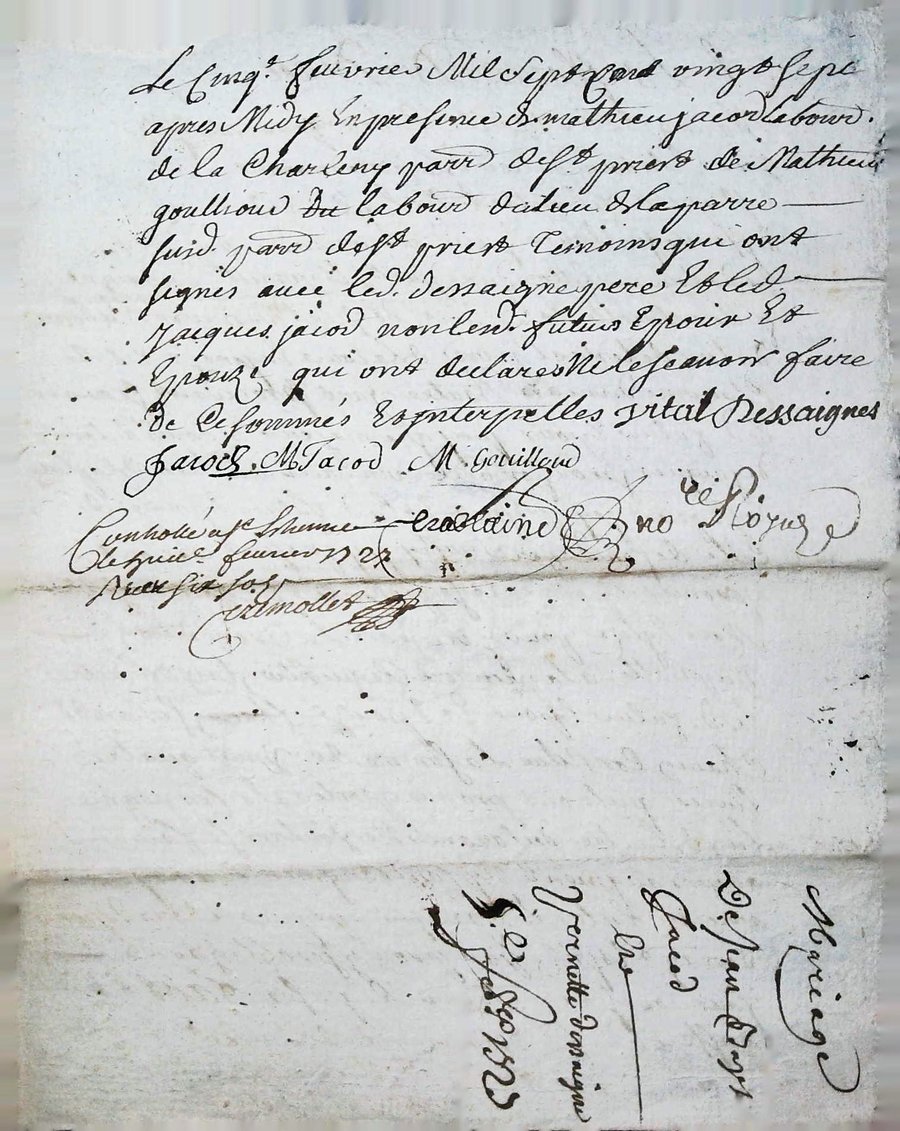 Le Cinqe. feuvrier Mil Sept Cent vingt sept
apres Midy En presence de mathieu jacod labour.
de la Charleny parr de st. priest de Mathieu
goulliond du labourd du lieu de la parre
susd. parr de st priest Temoins qui ont
signés avec led. dessaigne pere Et led.
Jacques jacod non lesd. futurs Epoux Et
Epouze qui ont declares Ne le scauoir faire
de Ce sommés Et Interpelles Vital Dessaignes
Jacod. M Jacod M. Gouilloud
no re Royal
Controllé a st Etienne
le feuvrier 1727
Receu six sols
Mariage
De jean
Jacod
Et
Vernette dessaigne
5.e feb 1727